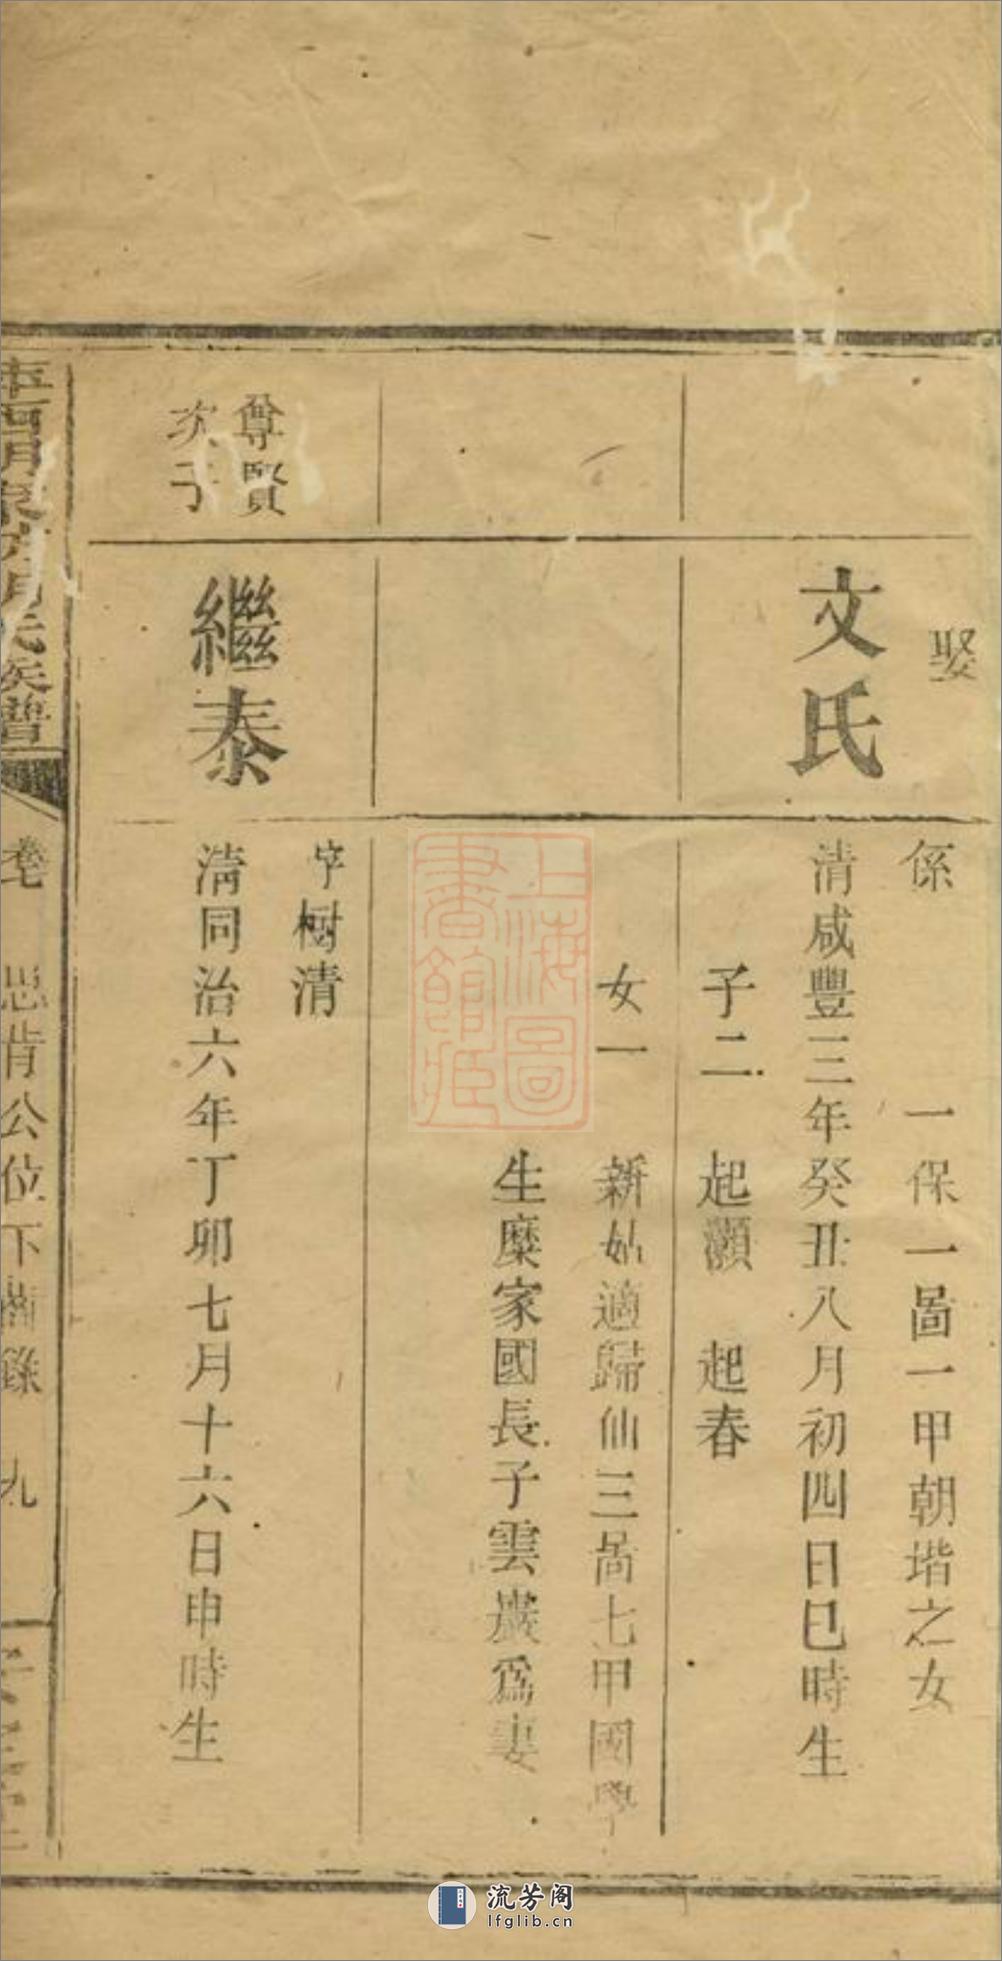 娶
文氏
係　一保一啚一甲朝堦之女
清咸豐三年癸丑八月初四日巳時生
子二　起灝　起春
女一　新姑適歸仙三啚七甲國學
生糜家國長子雲巖爲妻
尊賢
次子
繼泰
字樹清
清同治六年丁卯七月十六日申時生
氏族譜
卷七　思肯公位下齒錄　九
上海圖
書館藏
流芳阁
lfglib.cn